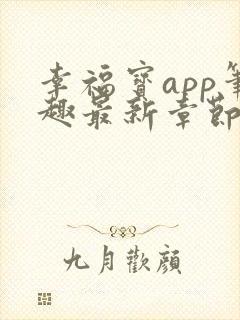 幸福寳app
趣最新章節
九月歡顔